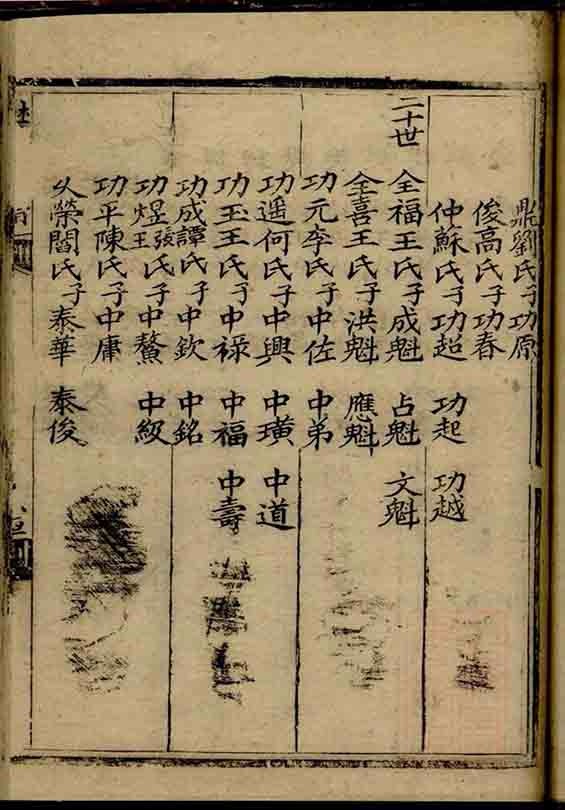 鼎劉氏子功原
俊高氏子功春
仲蘇氏子功超 功起 功越
二十世
全福王氏子成魁 占魁 文魁
全喜王氏子洪魁 應魁
功元李氏子中佐 中弟
功遥何氏子中興 中璜 中道
功玉王氏子中禄 中福 中壽
功成譚氏子中欽 中銘
功煜張王氏子中鰲 中級
功平陳氏子中庸
久榮閻氏子泰華 泰俊